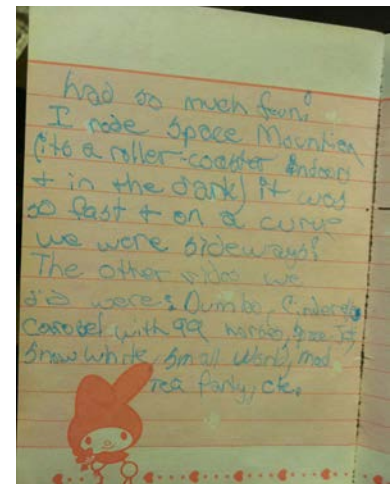 had so much fun!
I rode Space Mountien
(its a roller-coaster indoors
+ in the dark) it was
so fast + on a curve
we were sideways!
The other rides we
did were: Dumbo, Cinderella
Carosel with 99 horses, Space Jets
Snow white, Small World, mad
tea party, etc.